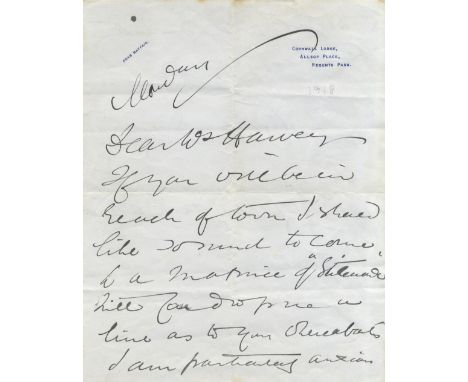 CORNWALL LODGE,
ALLSOP PLACE,
REGENTS PARK.
1918
Monday
Dear Mr Harvey
If you will be in
reach of town I should
like so much to come
to a matinee of
drop me a
line as to your whereabouts
I am particularly anxious